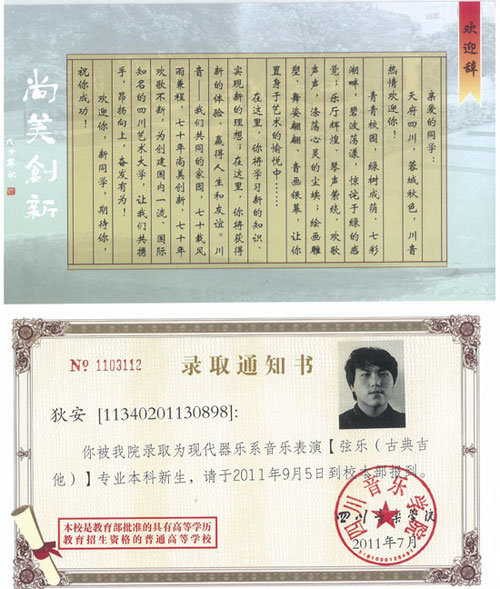 欢迎辞
亲爱的同学：
天府四川，蓉城秋色，川音
热情欢迎你！
青青校园，绿树成荫，七彩
湖畔，碧波荡漾，惊诧于绿的感
觉；乐厅辉煌，琴声萦绕，欢歌
声声，涤荡心灵的尘埃；绘画雕
塑，舞姿翩翩，音画银幕，让你
置身于艺术的愉悦中……
在这里，你将学习新的知识，
实现新的理想；在这里，你将获得
新的体验，赢得人生和友谊。川
音——我们共同的家园，七十载风
雨兼程，七十年尚美创新，七十年
欢歌不断，为创建国内一流、国际
知名的四川艺术大学，让我们共携
手，昂扬向上，奋发有为！
欢迎你，新同学，期待你，
祝你成功！
尚美创新
№ 1103112
录取通知书
狄安 [11340201130898]:
你被我院录取为现代器乐系音乐表演【弦乐（古典吉
他）】专业本科新生，请于2011年9月5日到校本部报到。
本校是教育部批准的具有高等学历
教育招生资格的普通高等学校
四川音乐学院
四川音乐学院
2011年7月